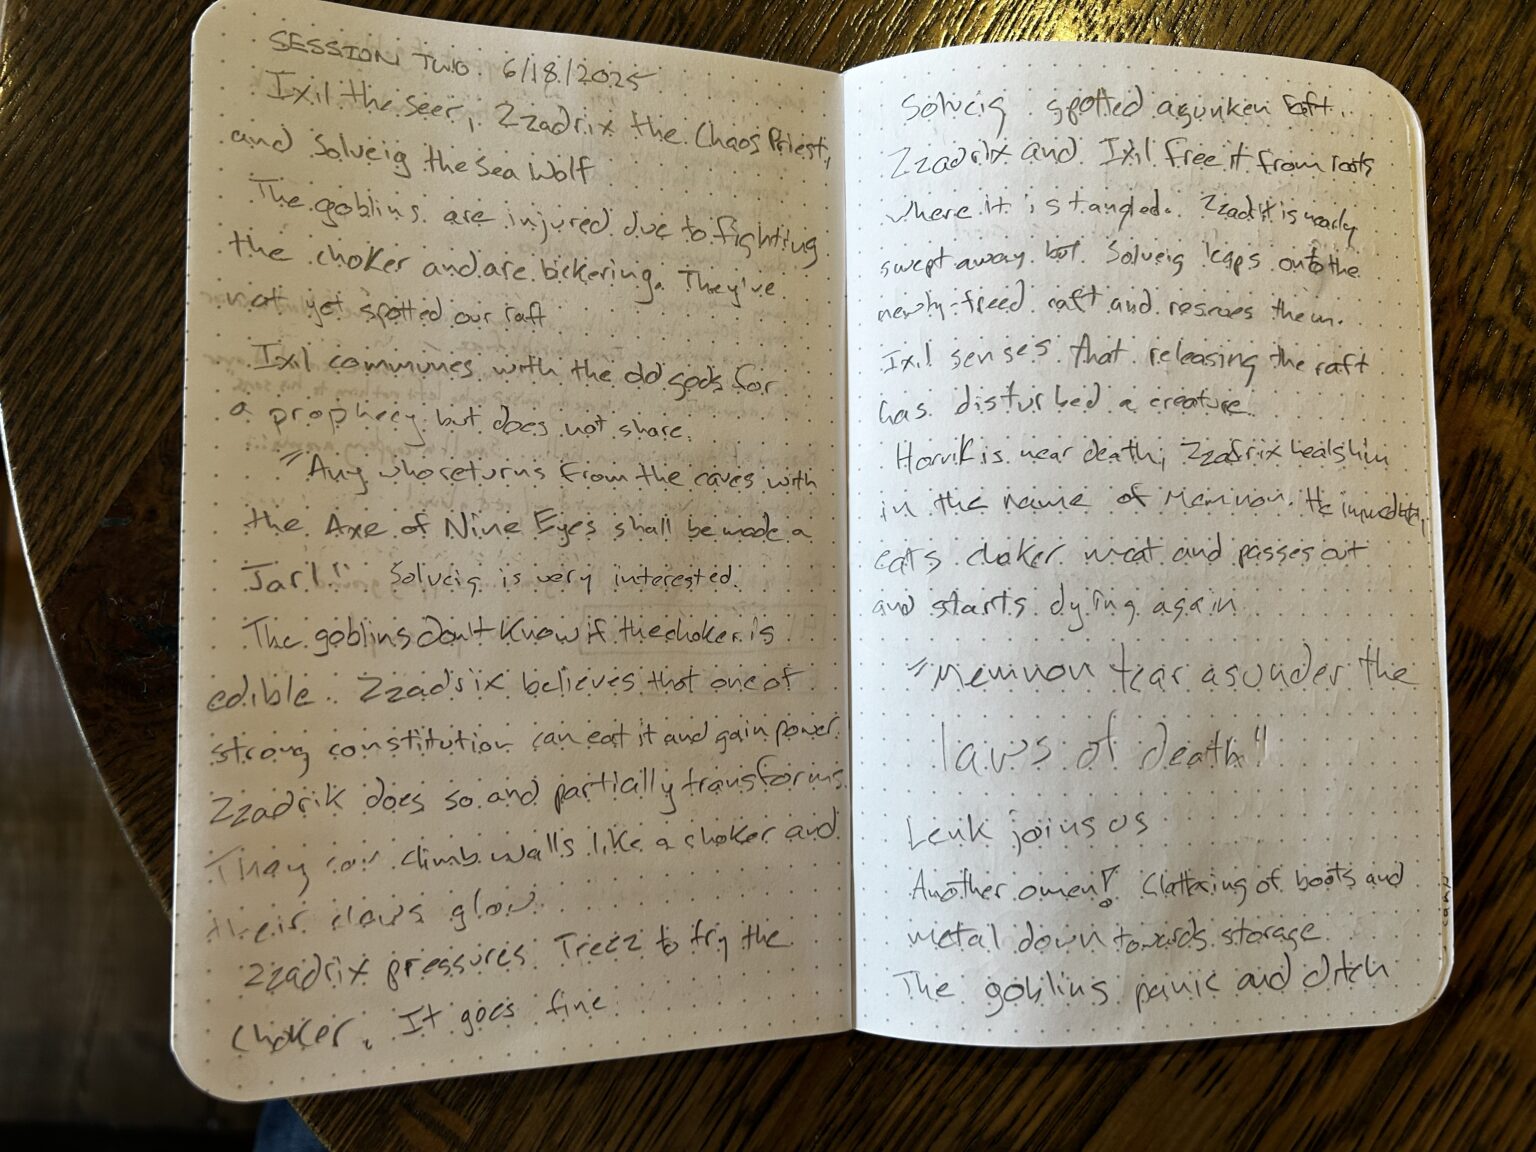 SESSION TWO. 6/18/2025
Ixil the seer, Zzadrix the Chaos Priest,
and Solveig the Sea Wolf
The goblins are injured due to fighting
the choker and are bickering. They've
not yet spotted our raft
Ixil communes with the old gods for
a prophecy but does not share.
"Any who returns from the caves with
the Axe of Nine Eyes shall be made a
Jarl!" Solveig is very interested.
The goblins don't know if the choker is
edible. Zzadrix believes that one of
strong constitution can eat it and gain power.
Zzadrix does so and partially transforms.
They can climb walls like a choker and
their claws glow.
Zzadrix pressures Treez to try the
choker. It goes fine
Solveig spotted a sunken raft.
Zzadrix and Ixil free it from roots
where it is tangled. Zzadrix is nearly
swept away but Solveig leaps onto the
newly-freed raft and rescues them.
Ixil senses that releasing the raft
has disturbed a creature
Horvik is near death, Zzadrix heals him
in the name of Memnon. He immediately
eats choker meat and passes out
and starts dying again
"Memnon tear asunder the
laws of death"
Lenk joins us
Another omen! Clattering of boots and
metal down towards storage
The goblins panic and ditch